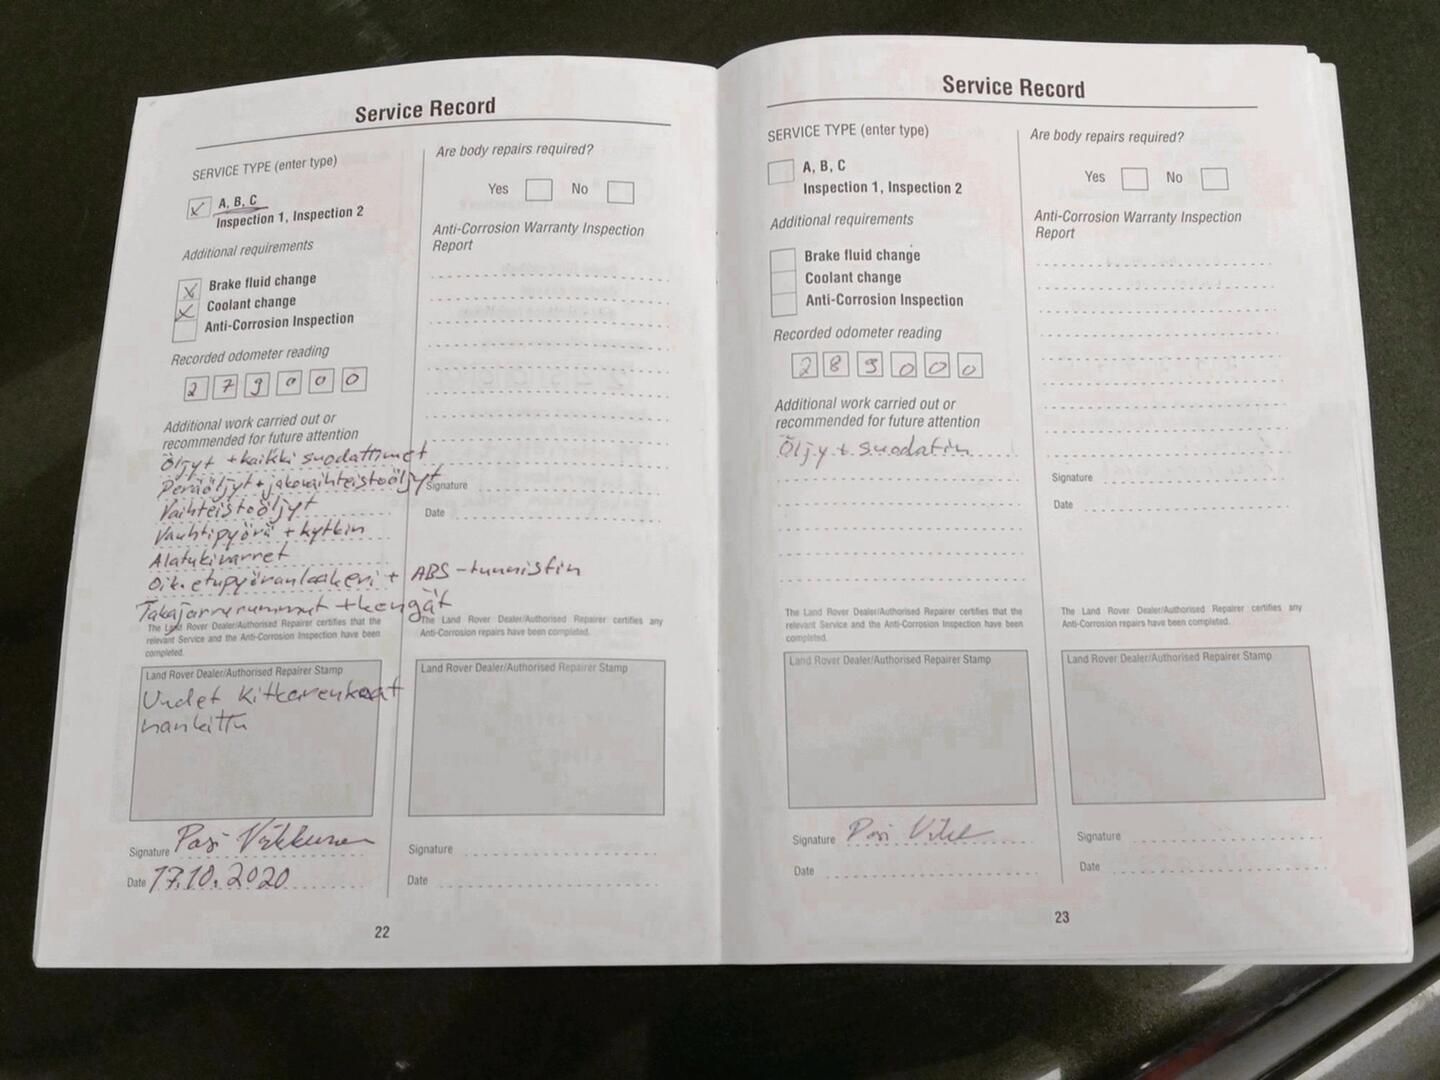 Service Record
SERVICE TYPE (enter type)
A, B, C
Inspection 1, Inspection 2
Additional requirements
Brake fluid change
Coolant change
Anti-Corrosion Inspection
Recorded odometer reading
279000
Additional work carried out or
recommended for future attention
Öljyt + kaikki suodattimet
Peräöljyt + jakovaihteistoöljyt
Vaihteistoöljyt
Vauhtipyörä + kytkin
Alatukivarret
Oik. etupyöränlaakeri + ABS-tunnistin
Takajarrurummut + kengät
The Land Rover Dealer/Authorised Repairer certifies that the
relevant Service and the Anti-Corrosion Inspection have been
completed.
Land Rover Dealer/Authorised Repairer Stamp
Uudet kitkarenkaat
hankittu
Signature Pasi
Date 17.10.2020
Are body repairs required?
Yes No
Anti-Corrosion Warranty Inspection
Report
Signature
Date
The Land Rover Dealer/Authorised Repairer certifies any
Anti-Corrosion repairs have been completed.
Land Rover Dealer/Authorised Repairer Stamp
Signature
Date
22
Service Record
SERVICE TYPE (enter type)
A, B, C
Inspection 1, Inspection 2
Additional requirements
Brake fluid change
Coolant change
Anti-Corrosion Inspection
Recorded odometer reading
289000
Additional work carried out or
recommended for future attention
Öljy + suodatin
The Land Rover Dealer/Authorised Repairer certifies that the
relevant Service and the Anti-Corrosion Inspection have been
completed.
Land Rover Dealer/Authorised Repairer Stamp
Signature
Date
Are body repairs required?
Yes No
Anti-Corrosion Warranty Inspection
Report
Signature
Date
The Land Rover Dealer/Authorised Repairer certifies any
Anti-Corrosion repairs have been completed.
Land Rover Dealer/Authorised Repairer Stamp
Signature
Date
23